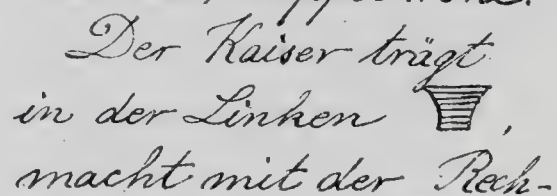 Der Kaiser trägt
in der Linken ,
macht mit der Rech-